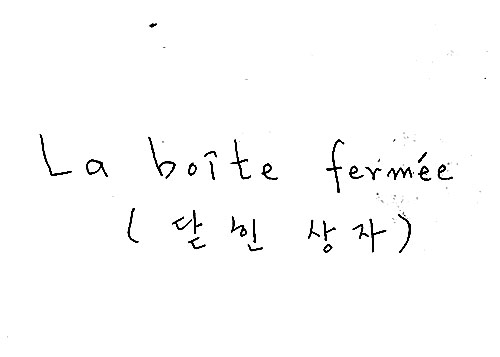 La boîte fermée
(닫힌 상자)